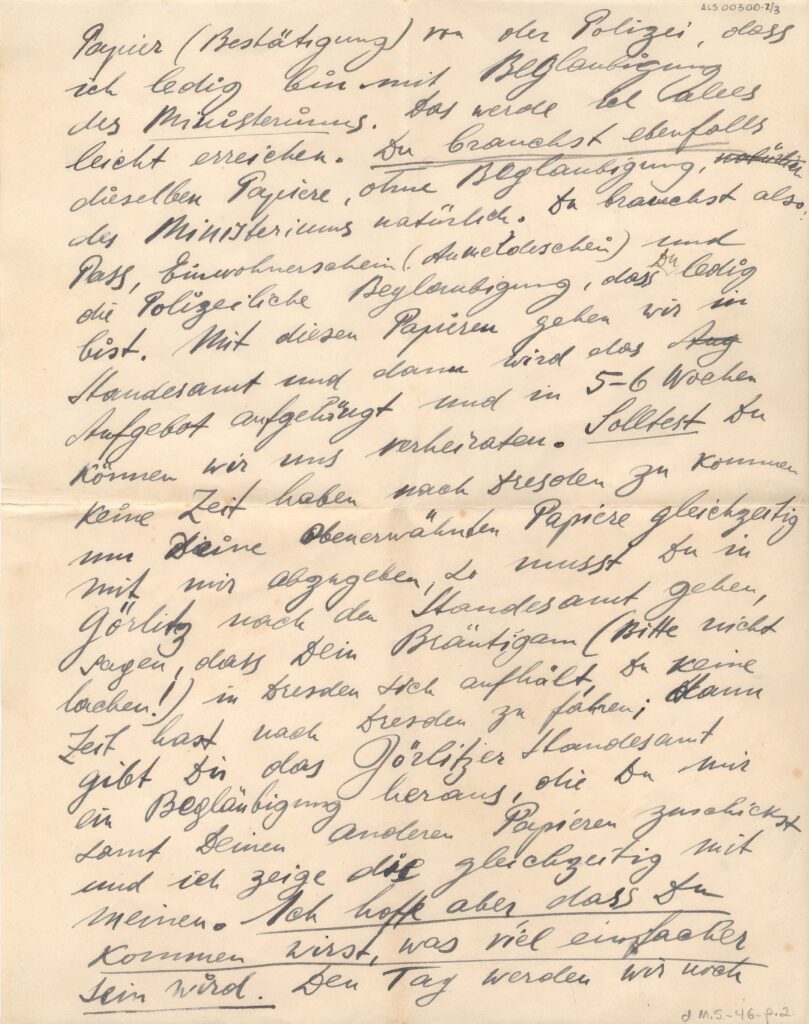 ALS00300-2/3
Papier (Bestätigung) von der Polizei, dass
ich ledig bin mit Beglaubigung
des Ministeriums. Das werde ich alles
leicht erreichen. Du brauchst ebenfalls
dieselben Papiere, ohne Beglaubigung, natürlich
des Ministeriums natürlich. Du brauchst also:
Pass, Einwohnerschein (Anmeldeschein) und
die Polizeiliche Beglaubigung, dass Du ledig
bist. Mit diesen Papieren gehen wir in
Standesamt und dann wird das Aug
Aufgebot aufgehängt und in 5-6 Wochen
können wir uns verheiraten. Solltest Du
keine Zeit haben nach Dresden zu kommen
um Deine obenerwähnten Papiere gleichzeitig
mit mir abzugeben, so musst Du in
Görlitz nach den Standesamt gehen,
sagen, dass Dein Bräutigam (Bitte nicht
lachen!) in Dresden sich aufhält, Du keine
Zeit hast nach Dresden zu fahren; dann
gibt Dir das Görlitzer Standesamt
ein Begläubigung heraus, die Du mir
samt Deinen anderen Papieren zuschickst
und ich zeige die gleichzeitig mit
meinen. Ich hoffe aber dass Du
kommen wirst, was viel einfacher
sein wird. Den Tag werden wir noch
M.5-46-p.2